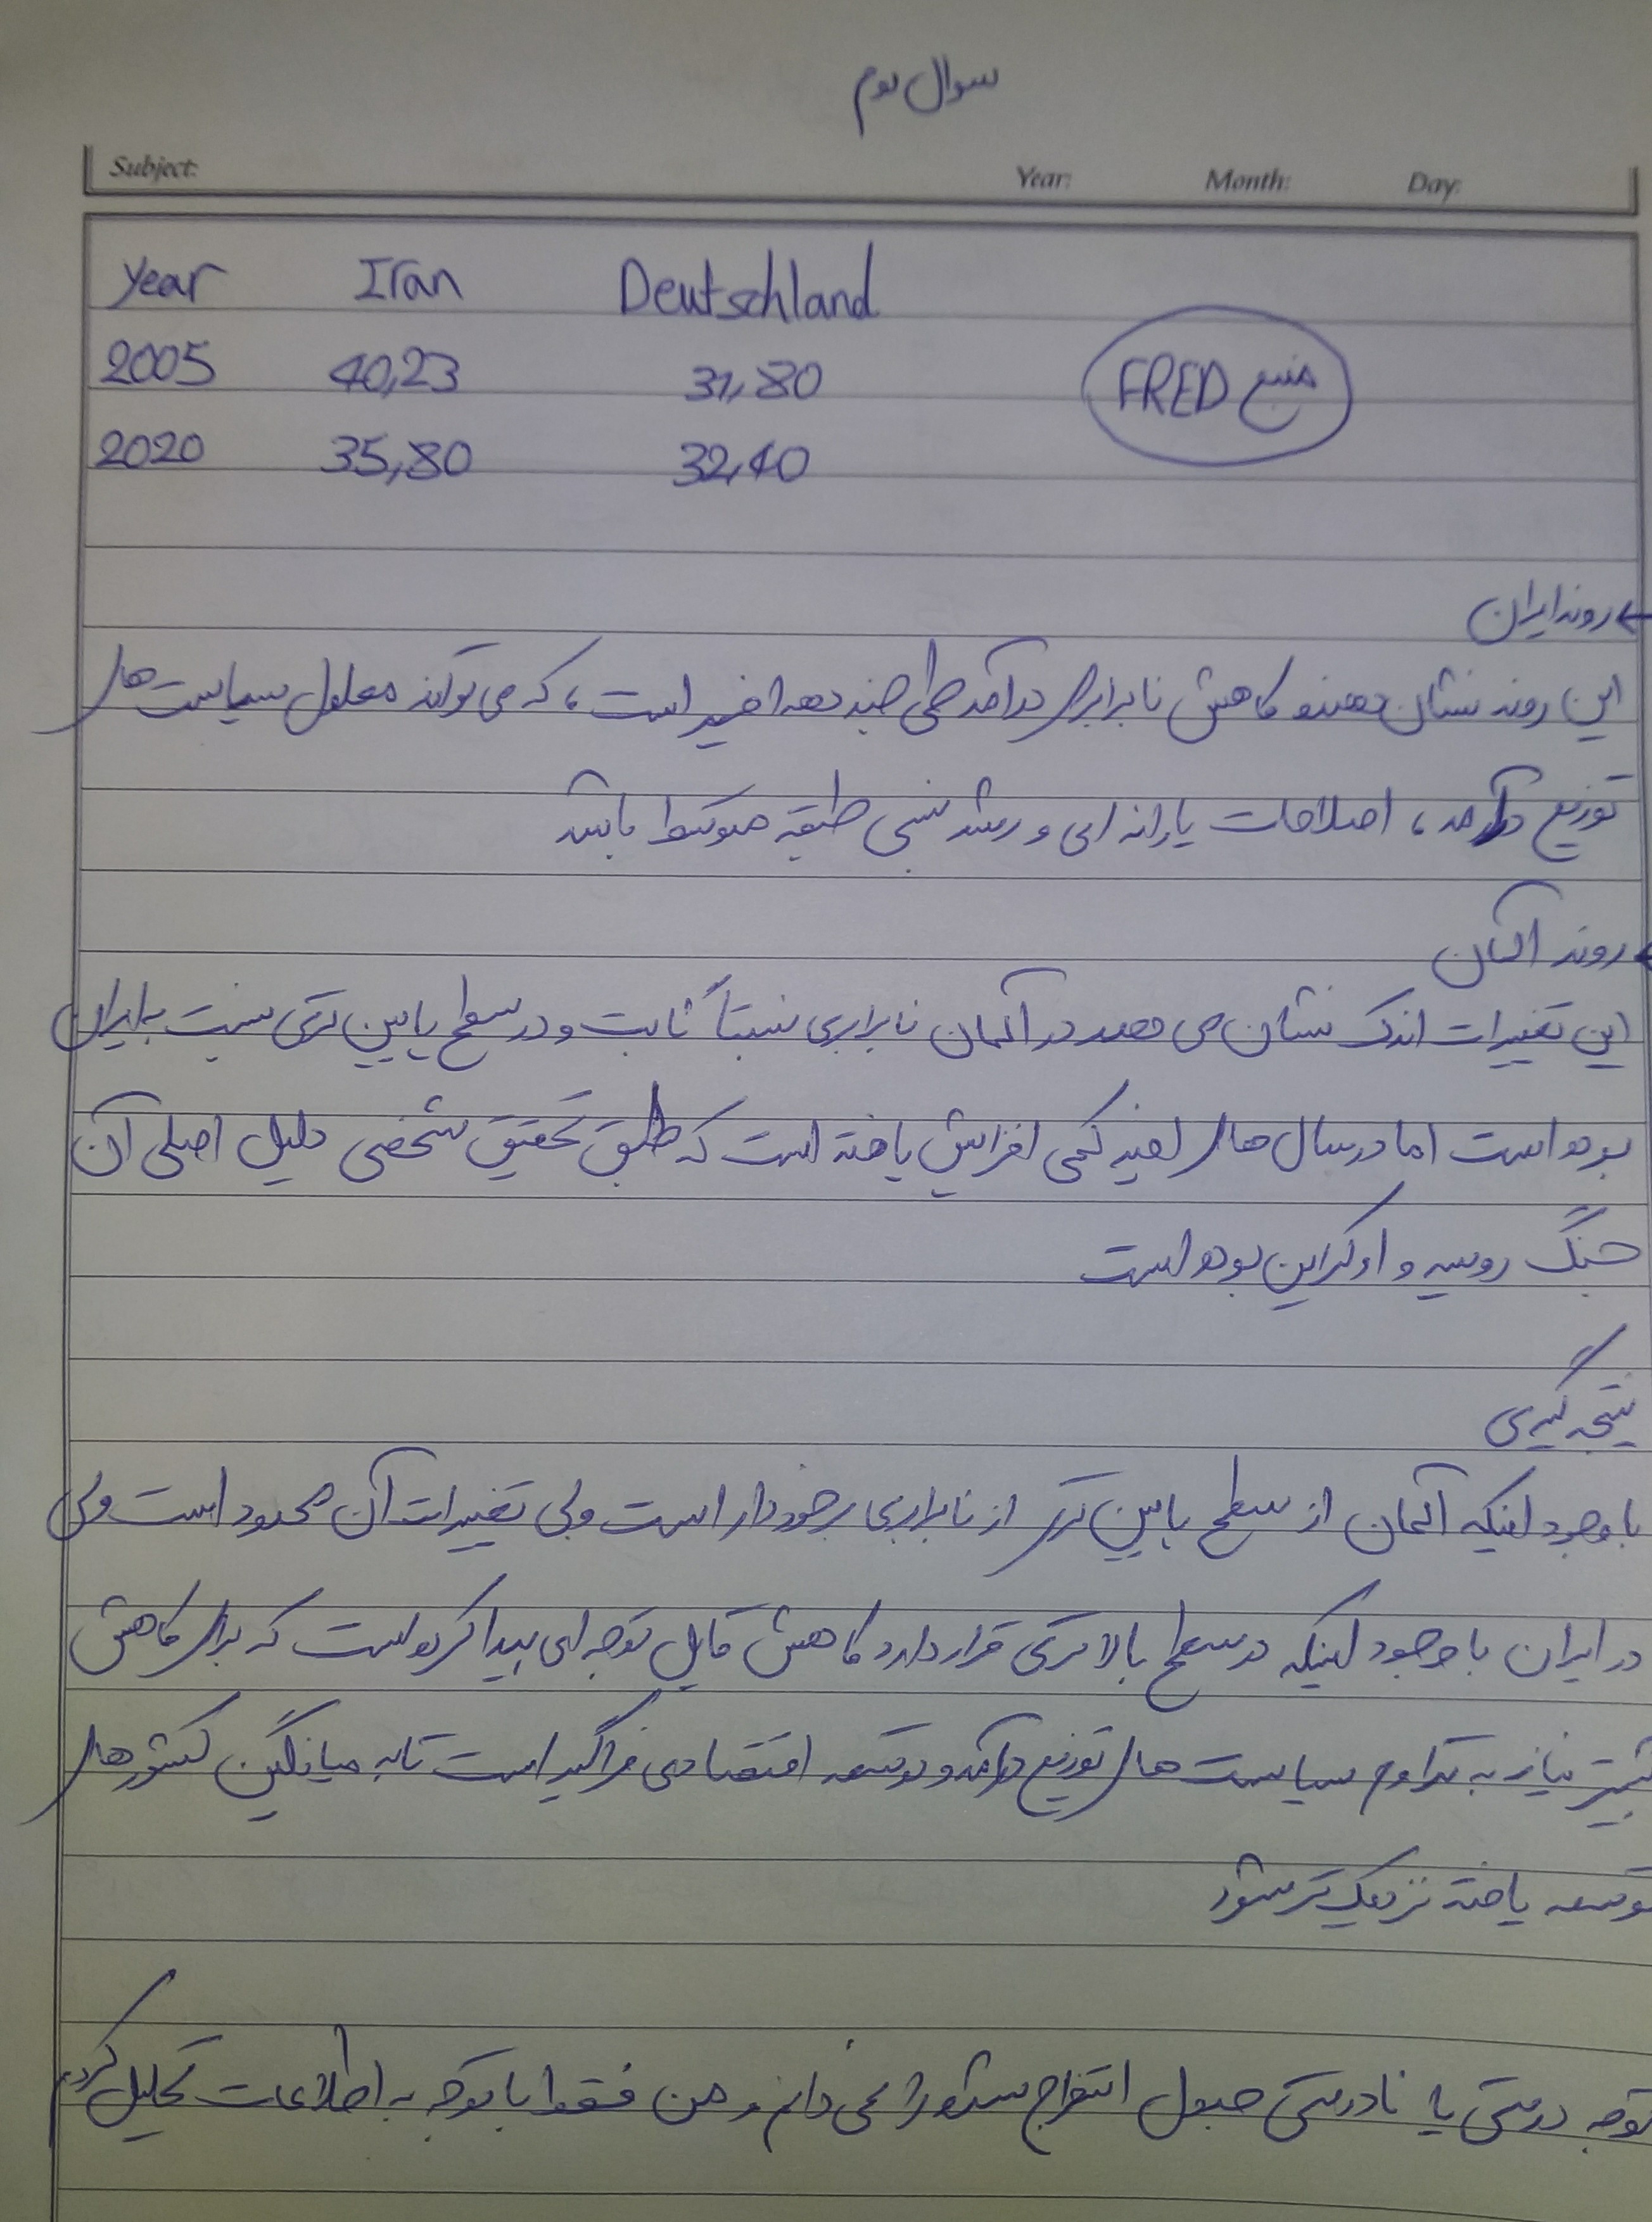 سوال دوم
Subject: Year: Month: Day:
Year Iran Deutschland
2005 40,23 31,80
منبع FRED
2020 35,80 32,40
← روند ایران
این روند نشان دهنده کاهش نابرابری درآمد طی چند دهه اخیر است، که می تواند معلول سیاست های
توزیع درآمد، اصلاحات یارانه ای و رشد نسبی طبقه متوسط باشد
← روند آلمان
این تغییرات اندک نشان می دهد در آلمان نابرابری نسبتاً ثابت و در سطح پایین تری نسبت به ایران
بوده است اما در سال های اخیر کمی افزایش یافته است که طبق تحقیق شخصی دلیل اصلی آن
جنگ روسیه و اوکراین بوده است
نتیجه گیری
با وجود اینکه آلمان از سطح پایین تری از نابرابری برخوردار است ولی تغییرات آن محدود است ولی
در ایران با وجود اینکه در سطح بالا تری قرار دارد کاهش قابل توجه ای پیدا کرده است که برای کاهش
بیشتر نیاز به تداوم سیاست های توزیع درآمد و توسعه اقتصادی فراگیر است تا به میانگین کشورهای
توسعه یافته نزدیک تر شود
توجه درستی یا نادرستی جدول استخراج شده را نمی دانم و من فقط با توجه به اطلاعات تحلیل کردم